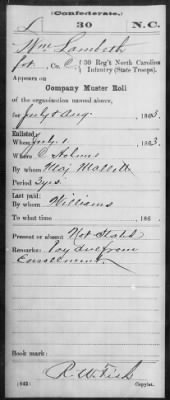 (Confederate.)
L 30 N.C.
Wm Lambeth
Pvt, Co. C, 30 Reg't North Carolina
Infantry (State Troops).
Appears on
Company Muster Roll
of the organization named above,
for July & Aug, 1863
Enlisted:
When July 1, 1863
Where C. Holmes
By whom Maj Mallett
Period 3 yrs
Last paid:
By whom Williams
To what time , 186 .
Present or absent Not Stated
Remarks: Pay due from
Enrollment.
Book mark:
(642) R. W. Fish
Copyist.